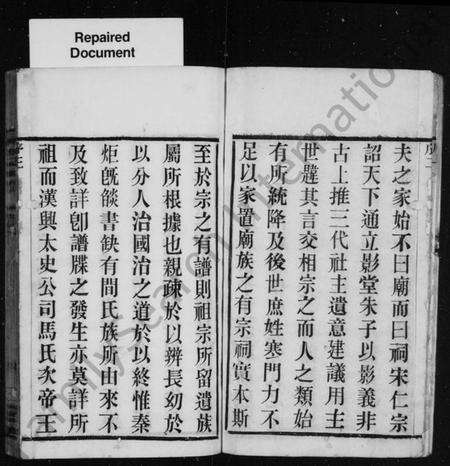 Repaired
Document
序二
夫之家始不曰廟而曰祠宋仁宗
詔天下通立影堂朱子以影義非
古上推三代社主遺意建議用主
世韙其言交相宗之而人之類始
有所統降及後世庶姓寒門力不
足以家置廟族之有宗祠實本斯
至於宗之有譜則祖宗所留遺族
屬所根據也親疎於以辨長幼於
以分人治國治之道於以終惟秦
炬旣燄書缺有間氏族所由來不
及致詳卽譜牒之發生亦莫詳所
祖而漢興太史公司馬氏次帝王
序三
FamilySearch International